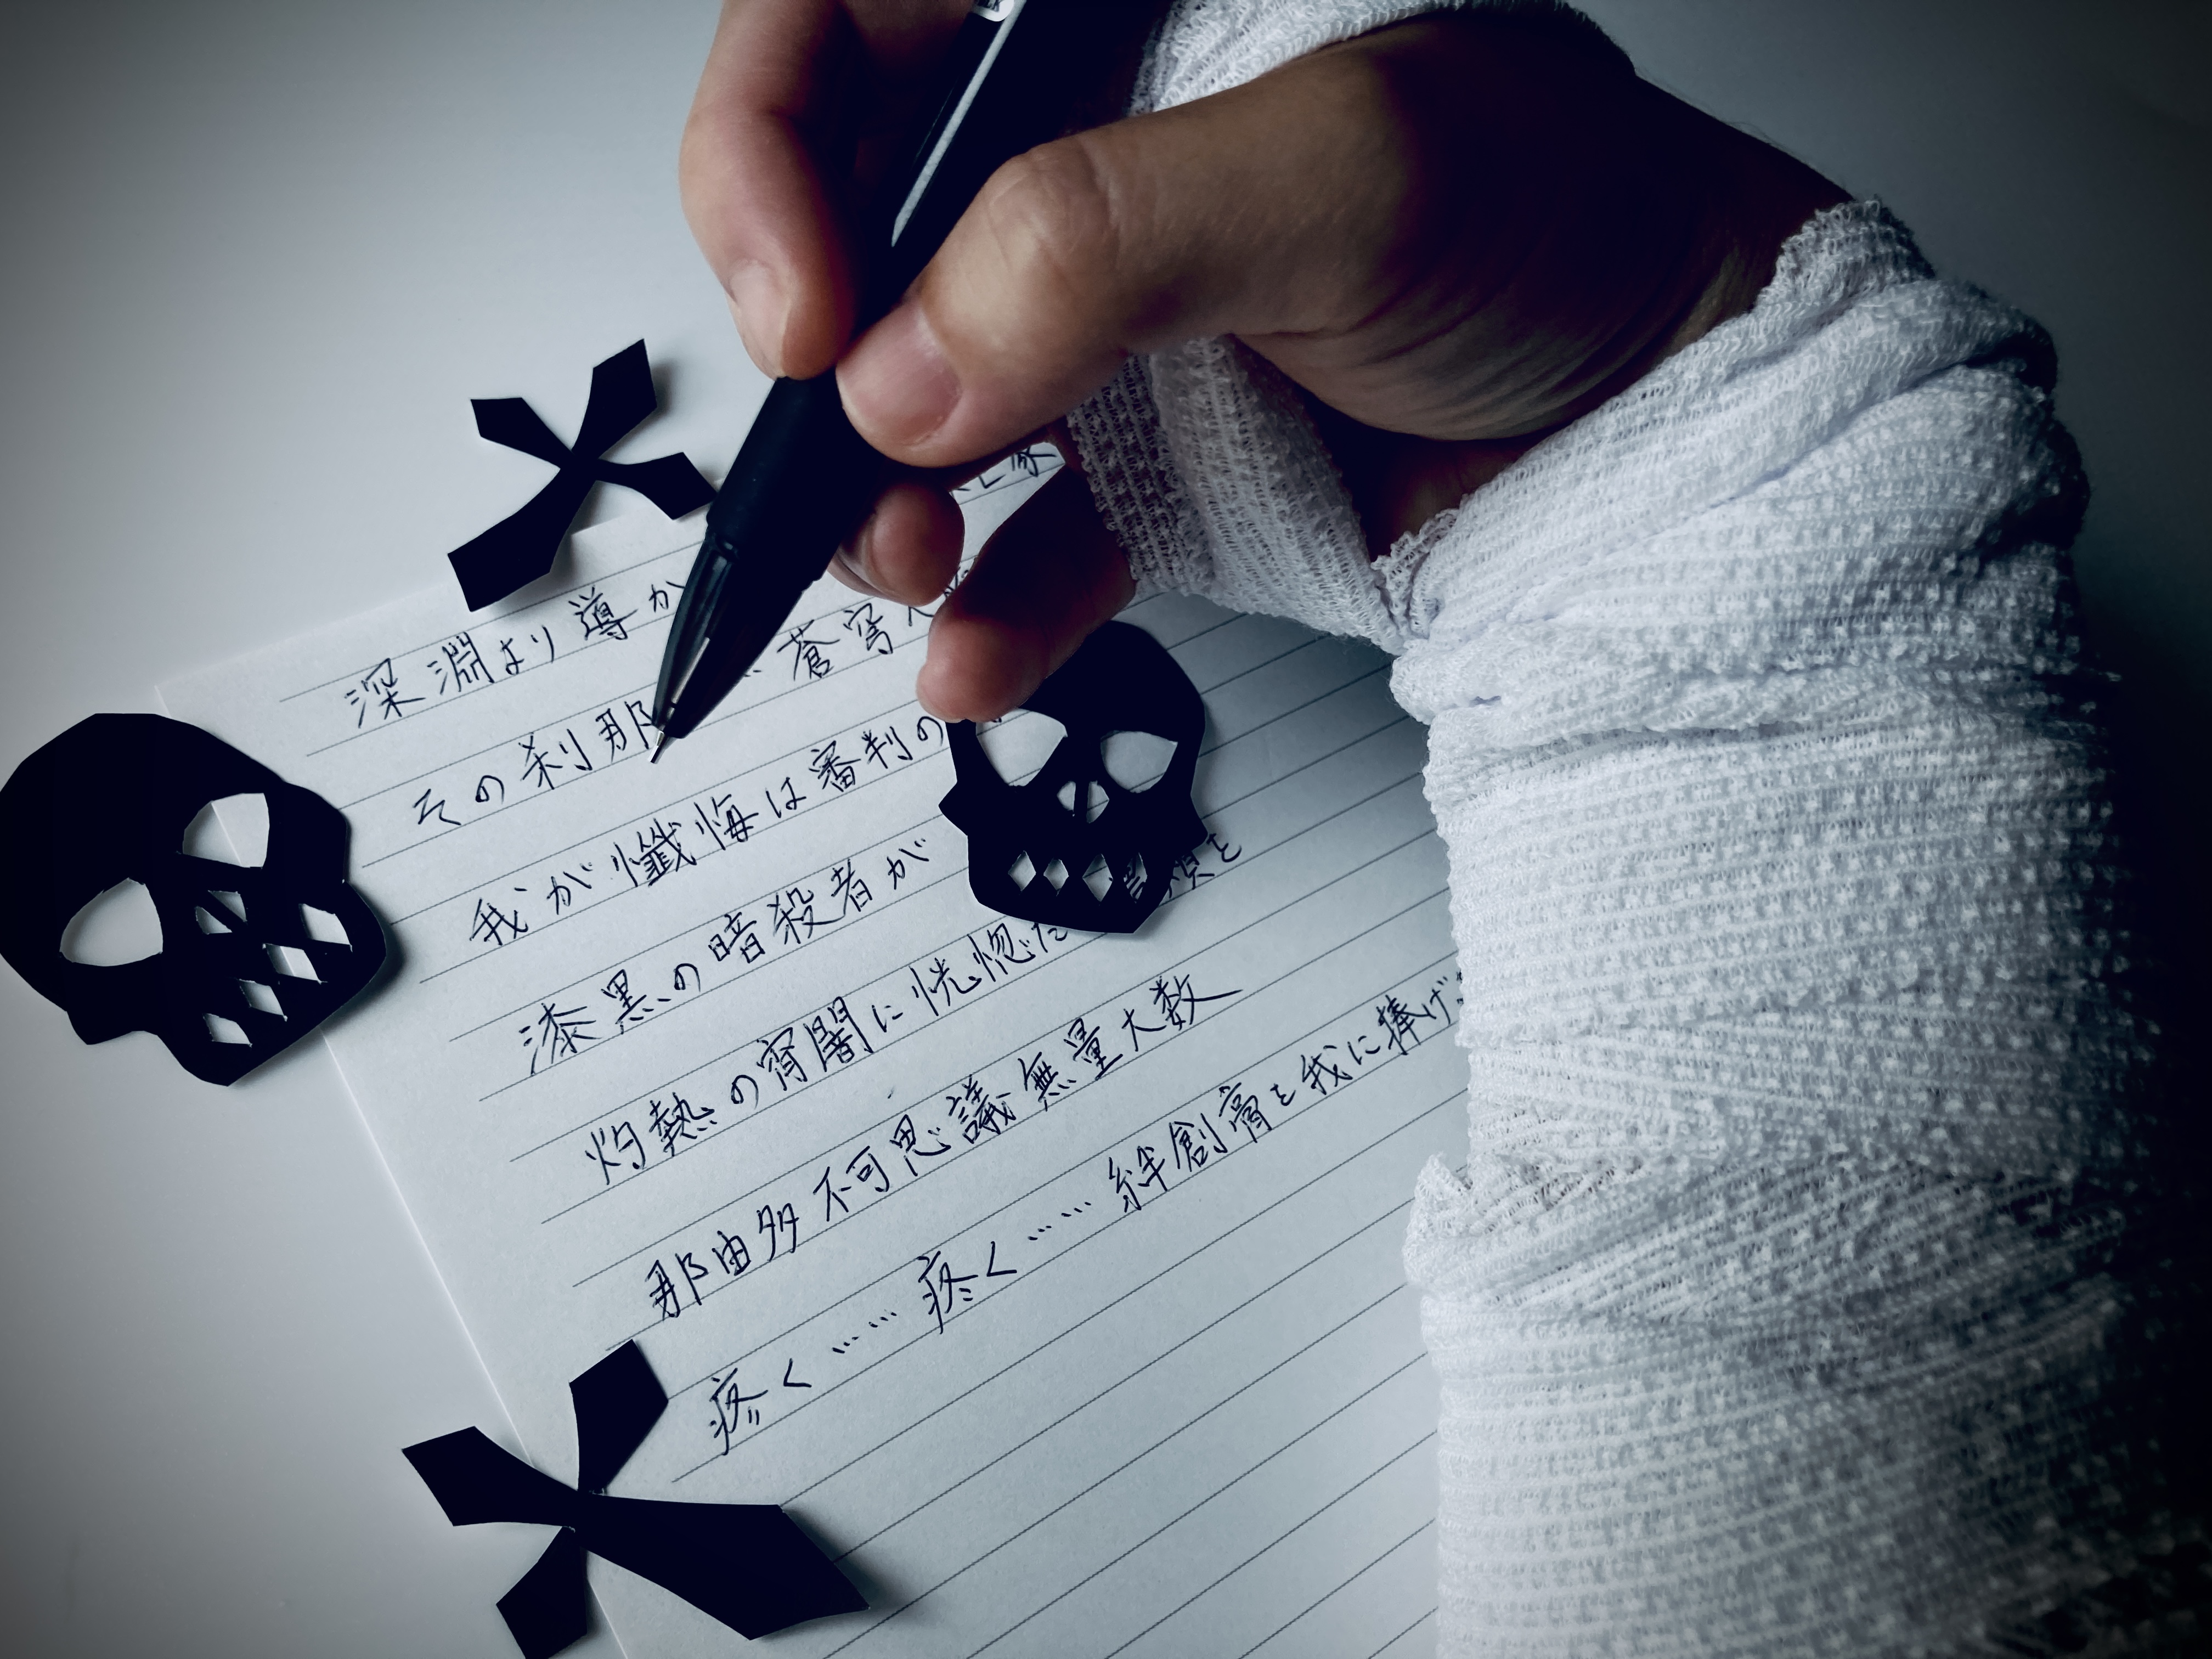 深淵より導か
その刹那 蒼穹
我が懺悔は審判の
漆黒の暗殺者が を
灼熱の宵闇に恍惚
那由多不可思議無量大数
疼く……疼く……絆創膏を我に捧げ